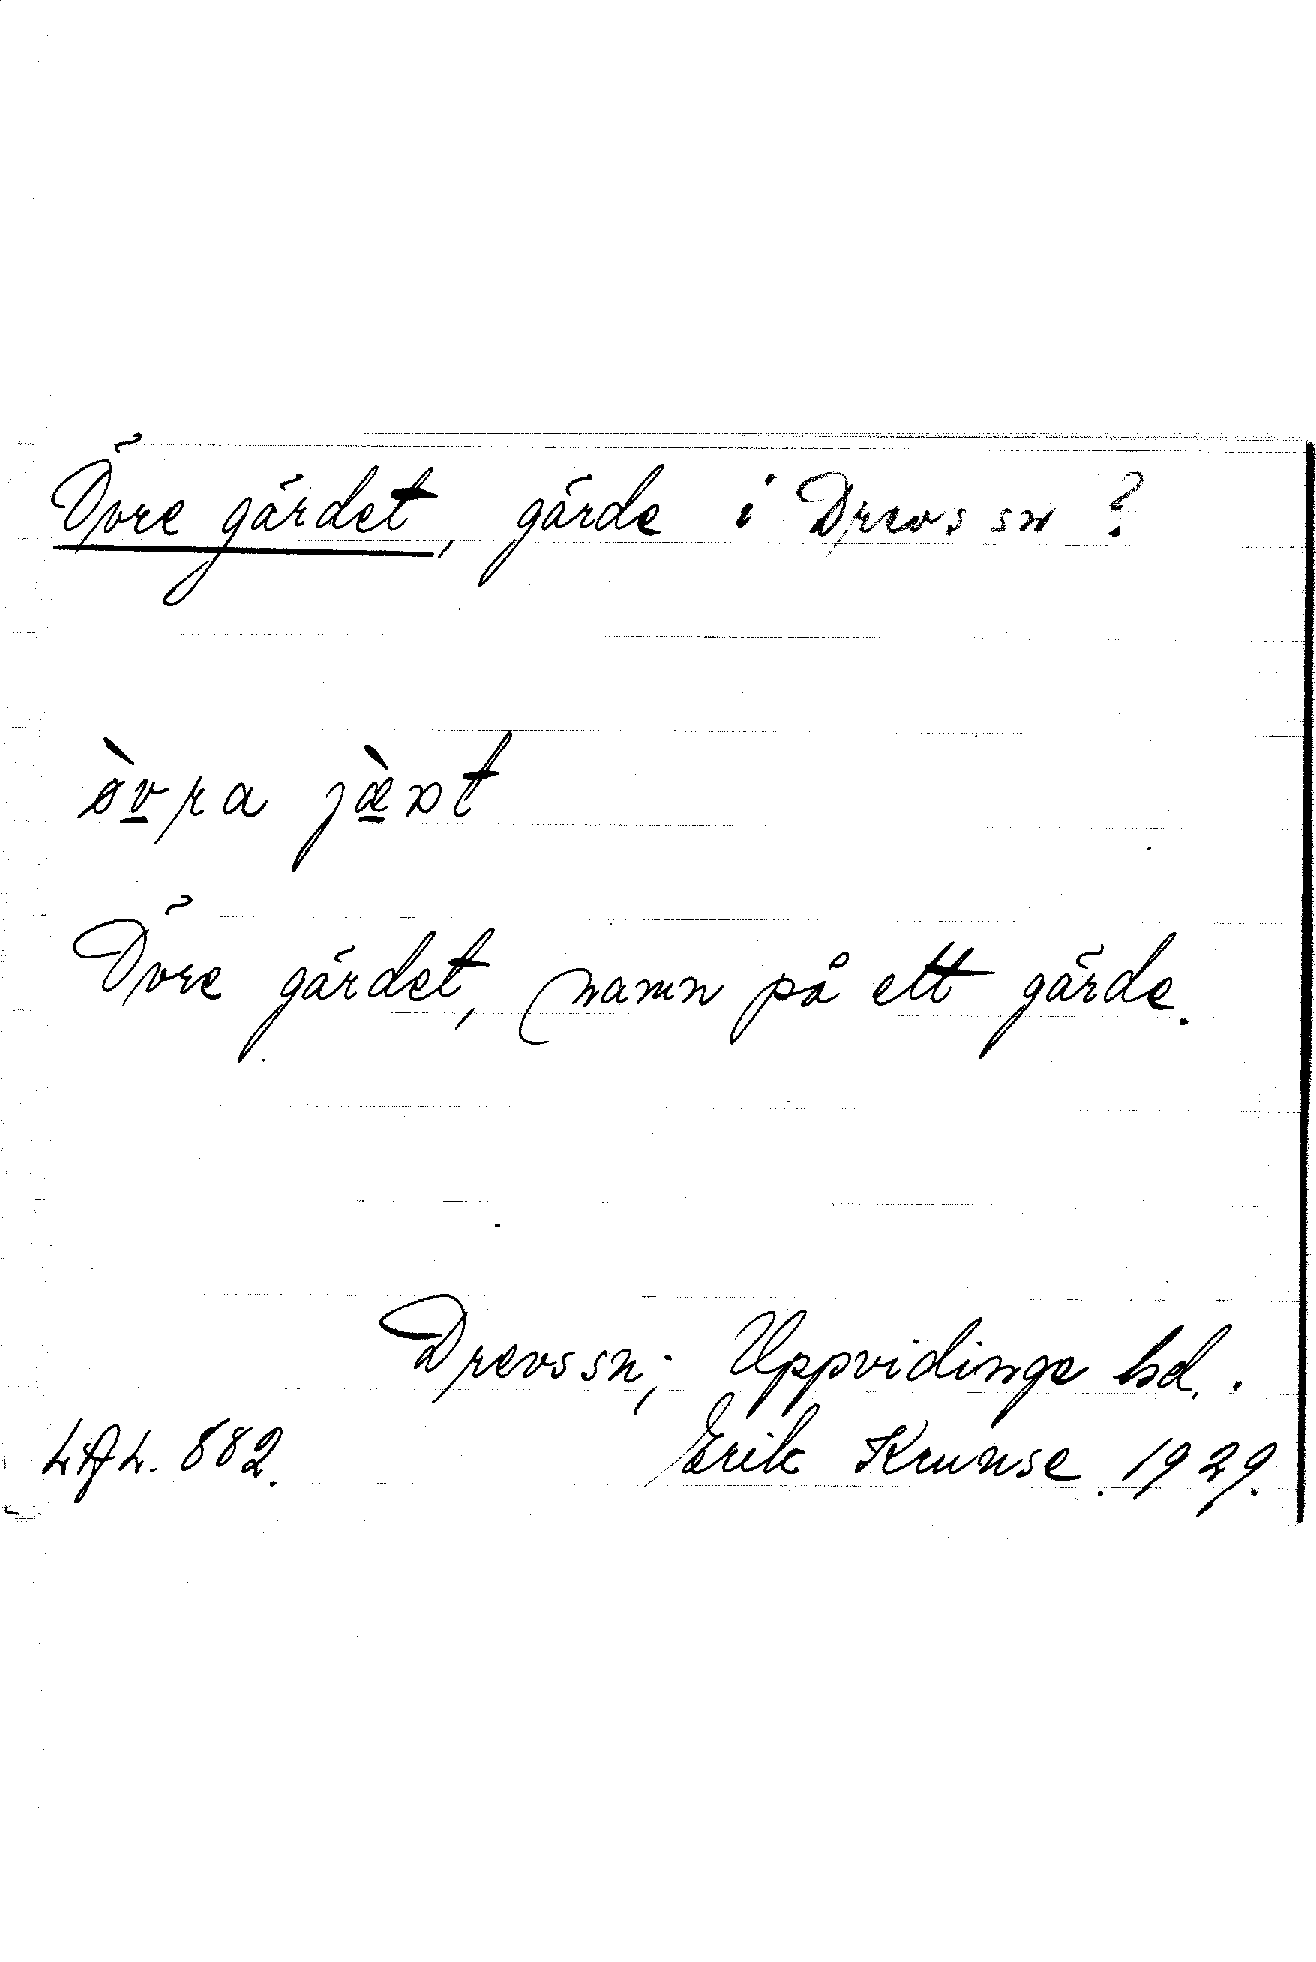 Övre gärdet, gärde i Drevs sn?
Övre gärdet, namn på ett gärde.
Drevs sn; Uppvidinge hd.
LAL. 882. Erik Kruuse. 1929.